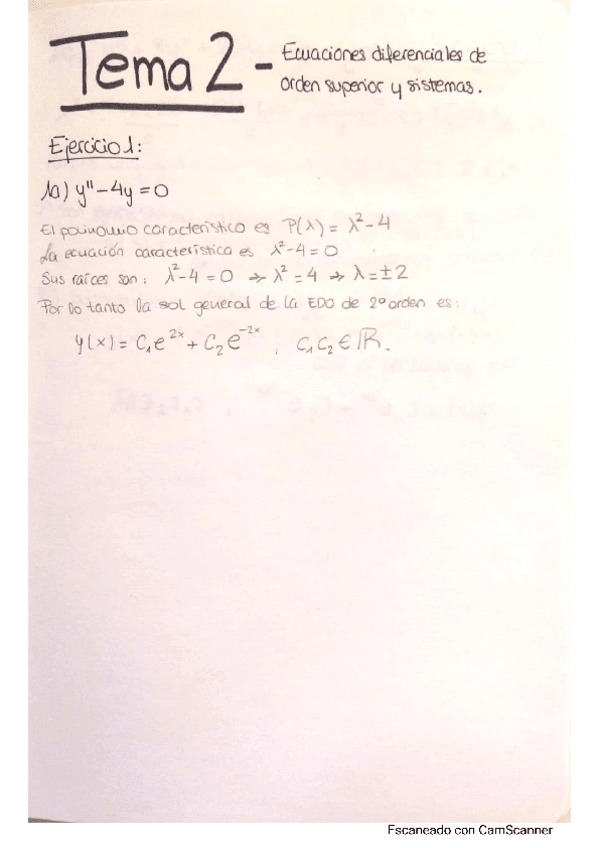 Tema 2 - Ecuaciones diferenciales de
orden superior y sistemas.
Ejercicio 1:
1a) y'' - 4y = 0
El polinomio característico es P(λ) = λ² - 4
La ecuación característica es λ² - 4 = 0
Sus raíces son: λ² - 4 = 0 → λ² = 4 → λ = ± 2
Por lo tanto la sol general de la EDO de 2º orden es:
y(x) = C₁e²ˣ + C₂e⁻²ˣ, C₁ C₂ ∈ ℝ.
Escaneado con CamScanner